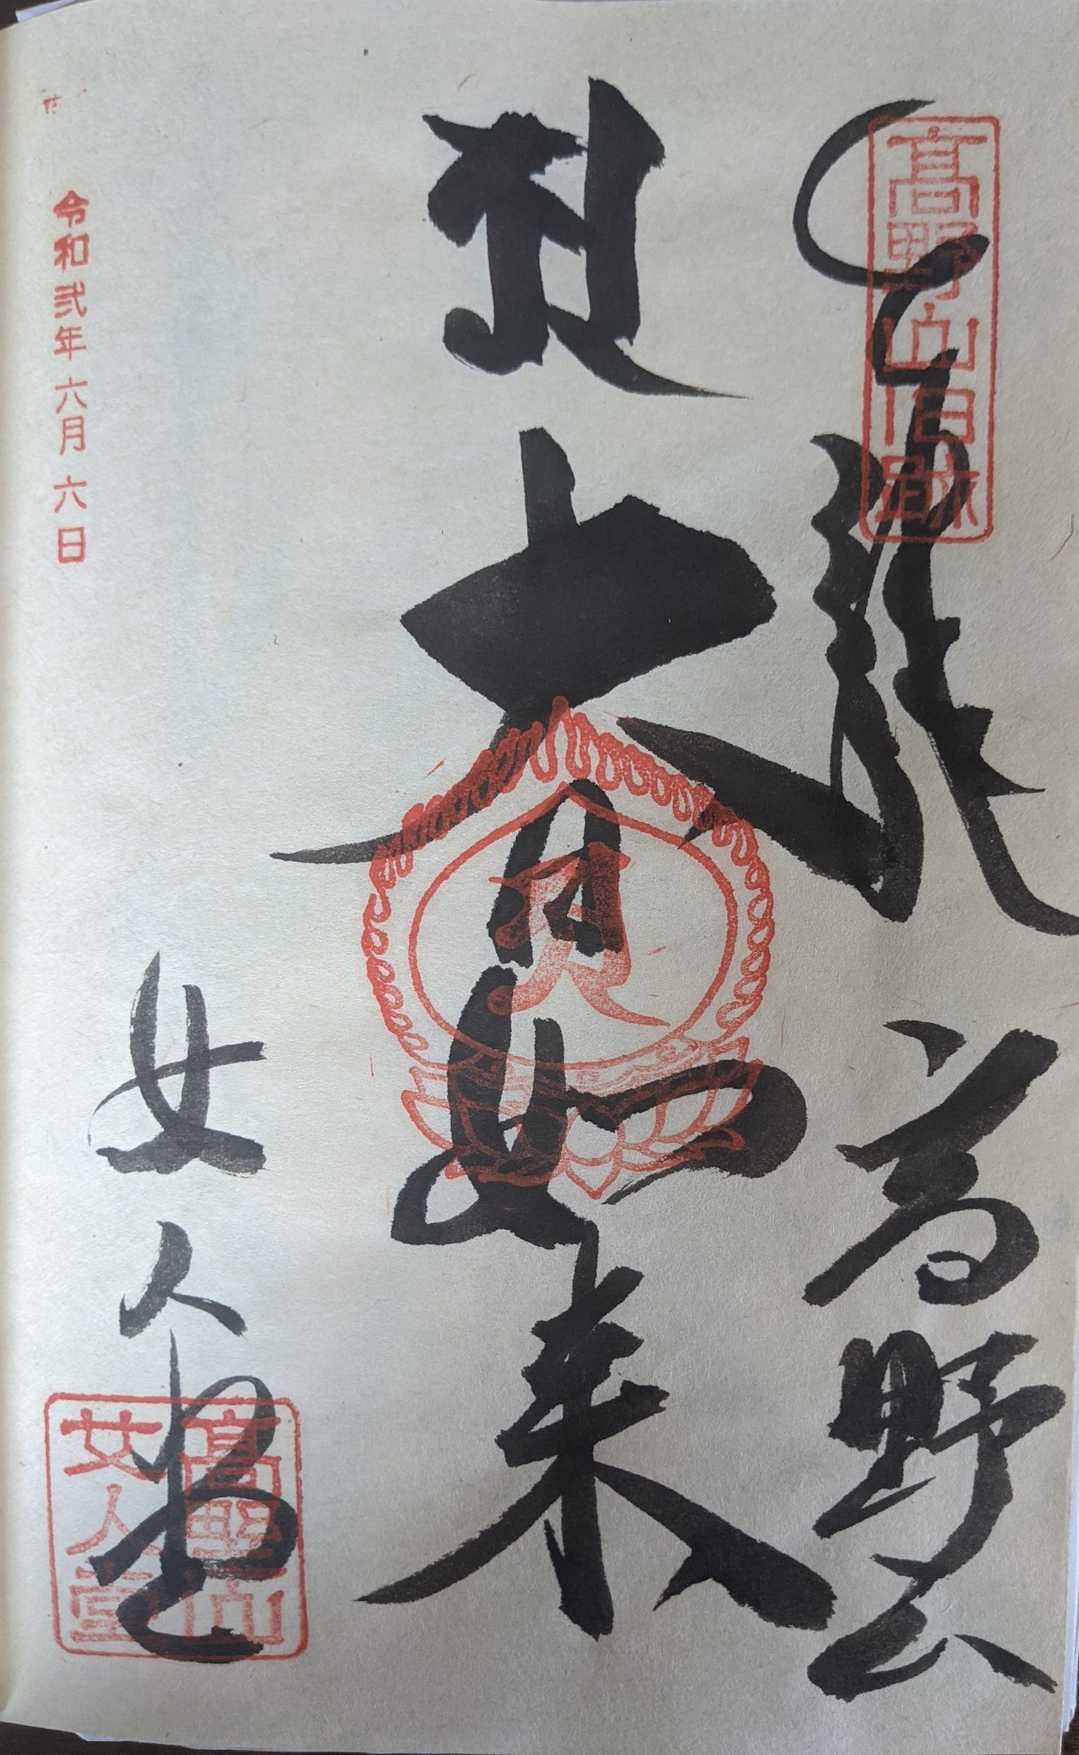 髙野山旧跡
奉拝 高野山
大日如来
女人堂
髙野山
女人堂
令和弐年六月六日